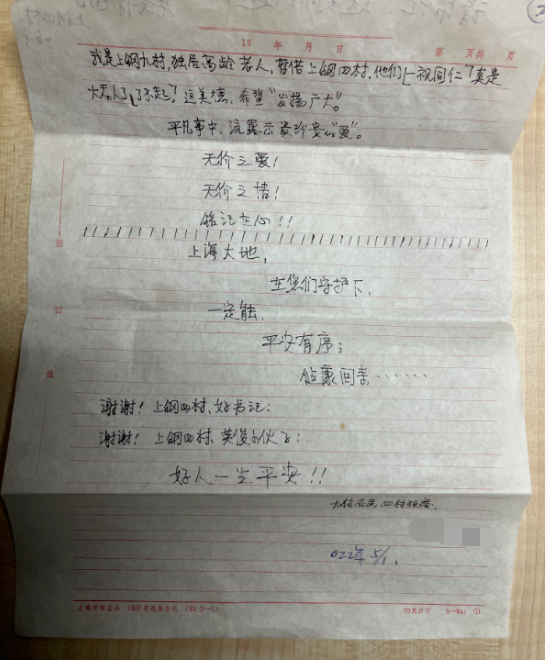 19 年 月 日 第 页共 页
我是上钢九村,独居高龄老人,暂借上钢四村,他们"一视同仁"真是
太了不起了!这美德,希望"发扬广大"。
平凡事中,流露出最珍贵的"爱"。
无价之爱!
无价之情!
铭记在心!!
上海大地,
在您们守护下,
一定能,
平安有序;
健康回来······
装
订
线
谢谢!上钢四村、好书记;
谢谢!上钢四村、英俊小伙子;
好人一生平安!!
九村居民,四村
022年5/1.